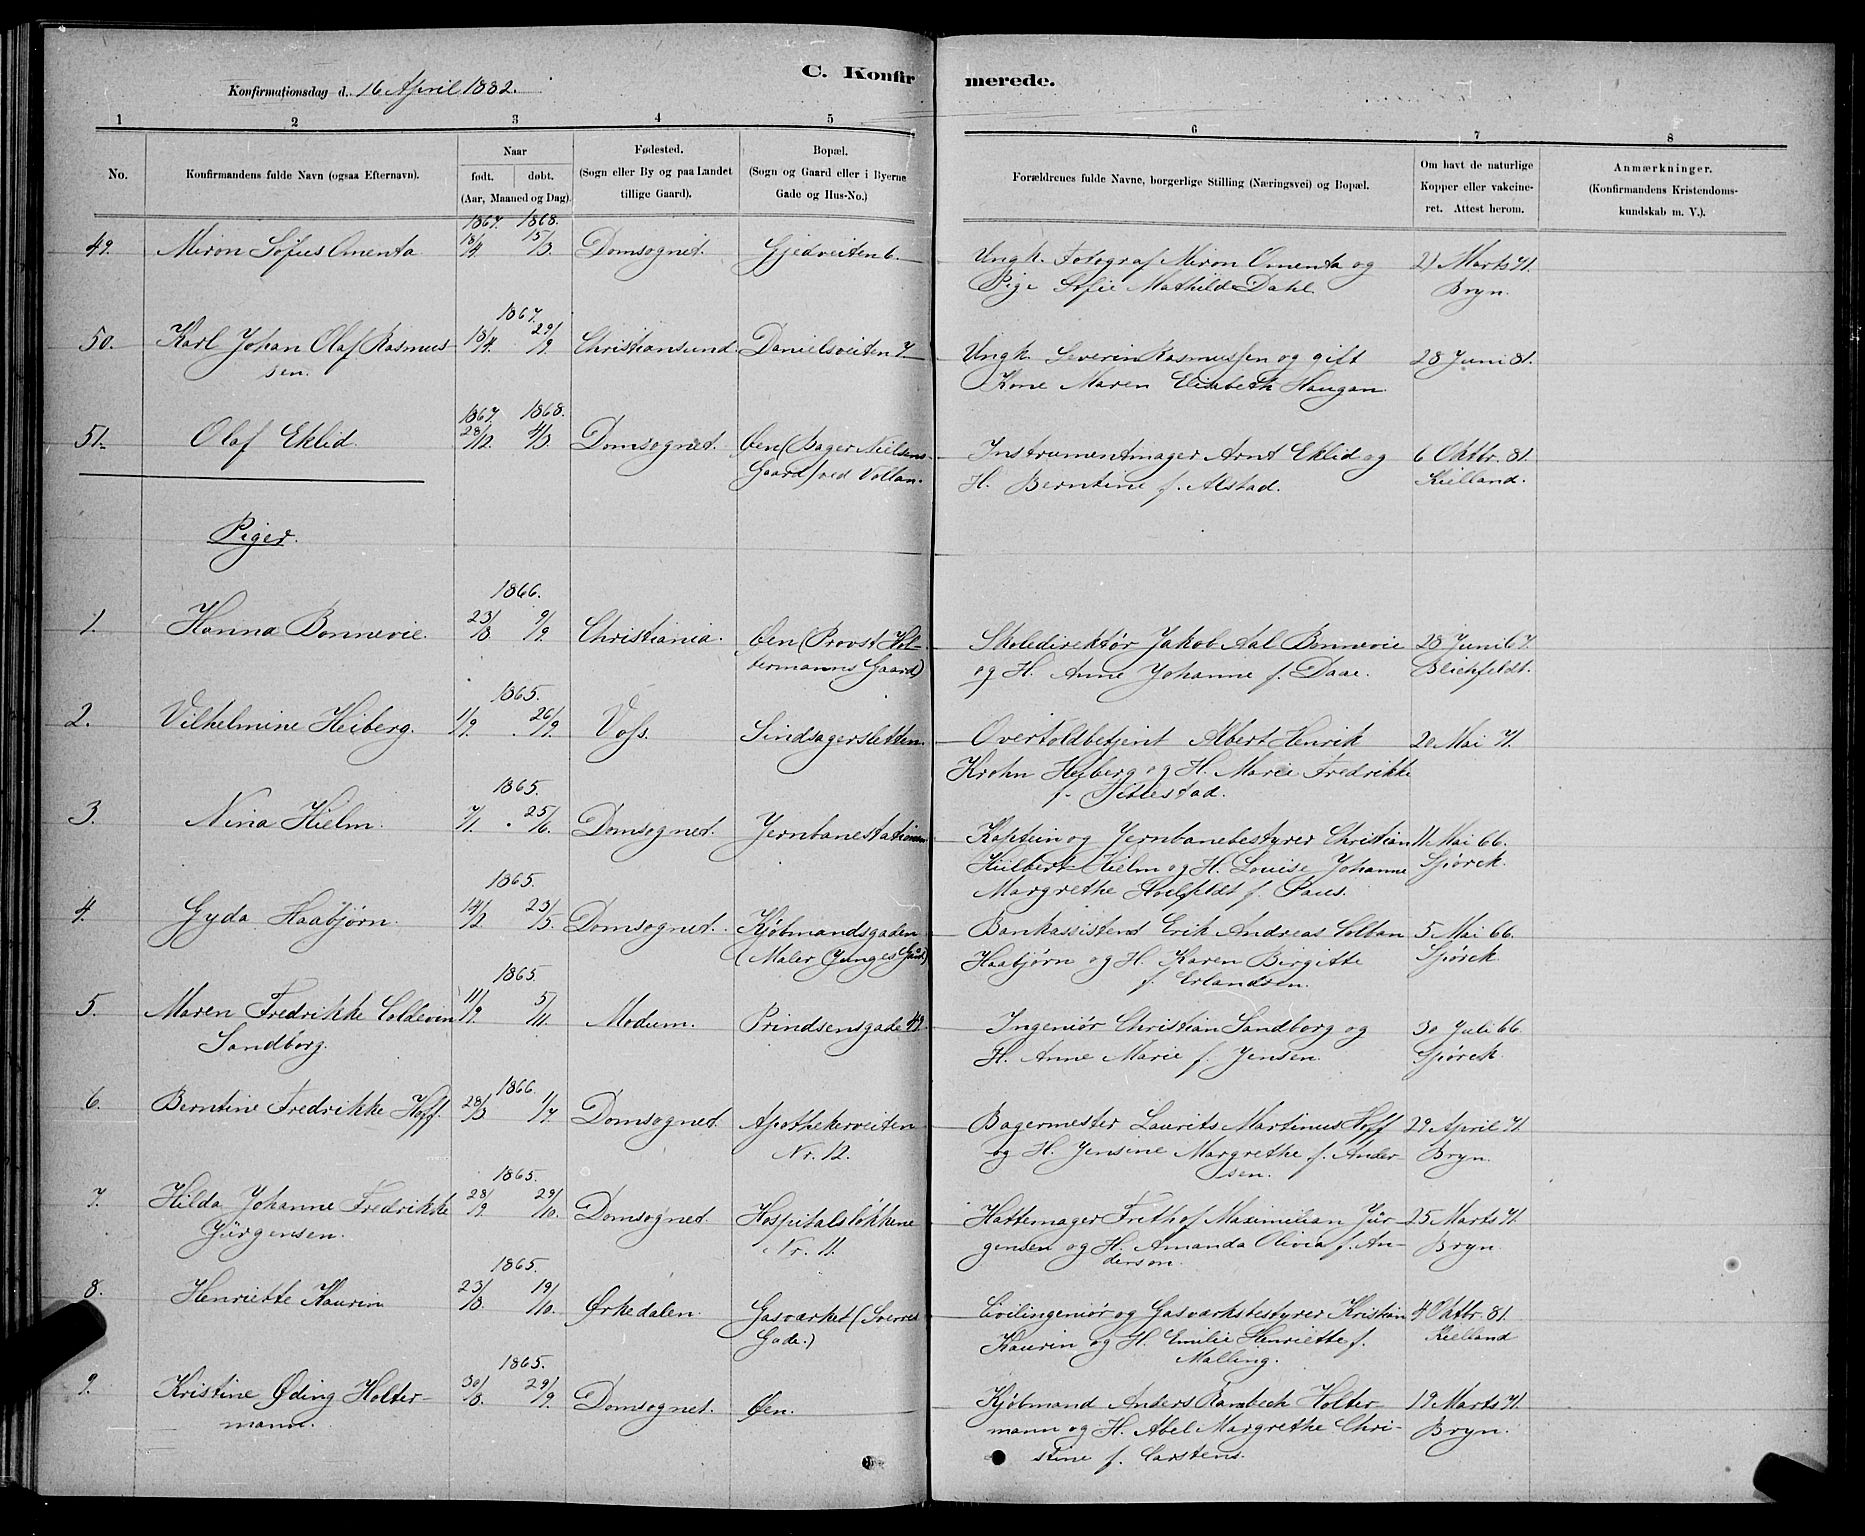 C. Konfirmerede.
Konfirmationsdag d. 16 April 1882.
1 2 3 4 5 6 7 8
No. Konfirmandens fulde Navn (ogsaa Efternavn). Naar født. døbt. (Aar, Maaned og Dag). Fødested. (Sogn eller By og paa Landet tillige Gaard). Bopæl. (Sogn og Gaard eller i Byerne Gade og Hus-No.) Forældrenes fulde Navne, borgerlige Stilling (Næringsvei) og Bopæl. Om havt de naturlige Kopper eller vakcineret. Attest herom. Anmærkninger. (Konfirmandens Kristendomskundskab m. V.).
1867. 1868.
49. Miron Sofus Omenta 18/4 15/3 Domsognet. Gjedveiten 6. Ungk. Fotograf Miron Omenta og 21 Marts 71.
Pige Sofie Mathilde Dahl Bryn.
1867.
50. Karl Johan Olaf Rasmus 18/4. 29/9. Christiansund Danielsveiten 7 Ungk. Severin Rasmussen og gift 28 Juni 81.
sen. Kone Maren Elisabeth Haugan
1867. 1868.
51. Olaf Eklid 28/12. 4/3. Domsognet. Øen (Bager Nielsens Instrumentmager Arnt Eklid og 6 Oktbr. 81.
Gaard) ved Vollan. H. Berntine f. Alstad. Kielland.
Piger.
1866.
1. Hanna Bonnevie 23/8 9/9. Christiania. Øen (Provst Hol- Skoledirektør Jakob Aal Bonnevie 28 Juni 67.
termanns Gaard) og H. Anne Johanne f. Daae. Blichfeldt.
1865.
2. Vilhelmine Heiberg. 11/9. 26/9. Voss. Sindsagersletten. Overtoldbetjent Albert Henrik 20 Mai 71.
Krohn Heiberg og H. Marie Fredrikke
f. Fittestad.
1865.
3. Nina Hielm. 7/1. 25/6. Domsognet. Jernbanestationen Kaptein og Jernbanebestyrer Christian 11 Mai 66.
Hielm og H. Louise Johanne Spörck.
Margrethe f. Paus.
1865.
4. Gyda Haabjørn. 14/2 23/5. Domsognet. Kjøbmandsgaden Bankassistent Erik Andreas Colban 5 Mai 66.
(Maler Junges Gaard) Haabjørn og H. Karen Birgitte Spörck
f. Erlandsen.
1865.
5. Maren Fredrikke Coldevin 11/9. 5/11. Modum. Prindsensgade 49. Ingeniør Christian Sandborg og 30 Juli 66.
Sandborg. H. Anne Marie f. Jensen. Spörck.
1866.
6. Berntine Fredrikke Hoff. 28/3 1/7. Domsognet Apothekerveiten Bagermester Laurits Martinus Hoff 29 April 71.
Nr. 12. og H. Jensine Margrethe f. Ander- Bryn.
sen.
1865.
7. Hilda Johanne Fredrikke 28/9. 29/10. Domsognet Hospitalsløkkene Hattemager Frithof Maximilian Jür- 25 Marts 71.
Jürgensen. Nr. 11. gensen og H. Amanda Olivia f. An- Bryn.
derson.
1865.
8. Henriette Kaurin 23/8. 19/10. Ørkedalen. Gasværket (Sverres Civilingeniør og Gasværksbestyrer Kristian 4 Oktbr. 81.
Gade.) Kaurin og H. Emilie Henriette f. Kielland
Malling.
1865.
9. Kristine Øding Holter- 30/8. 29/9. Domsognet. Øen. Kjøbmand Anders Rambech Holter- 19 Marts 71.
mann. mann og H. Abel Margrethe Chri- Bryn.
stine f. Carstens.